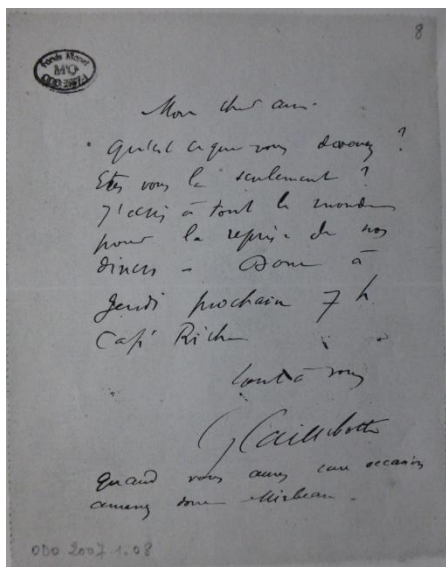 8
Fonds Monet
MO
ODO 2007-1
Mon cher ami
Qu'est ce que vous devenez ?
Etes vous là seulement ?
J'écris à tout le monde
pour la reprise de nos
diners - Donc à
Jeudi prochain 7 h
Café Riche
tout à vous
G Caillebotte
Quand vous aurez une occasion
amenez donc Mirbeau.
ODO 2007.1.08